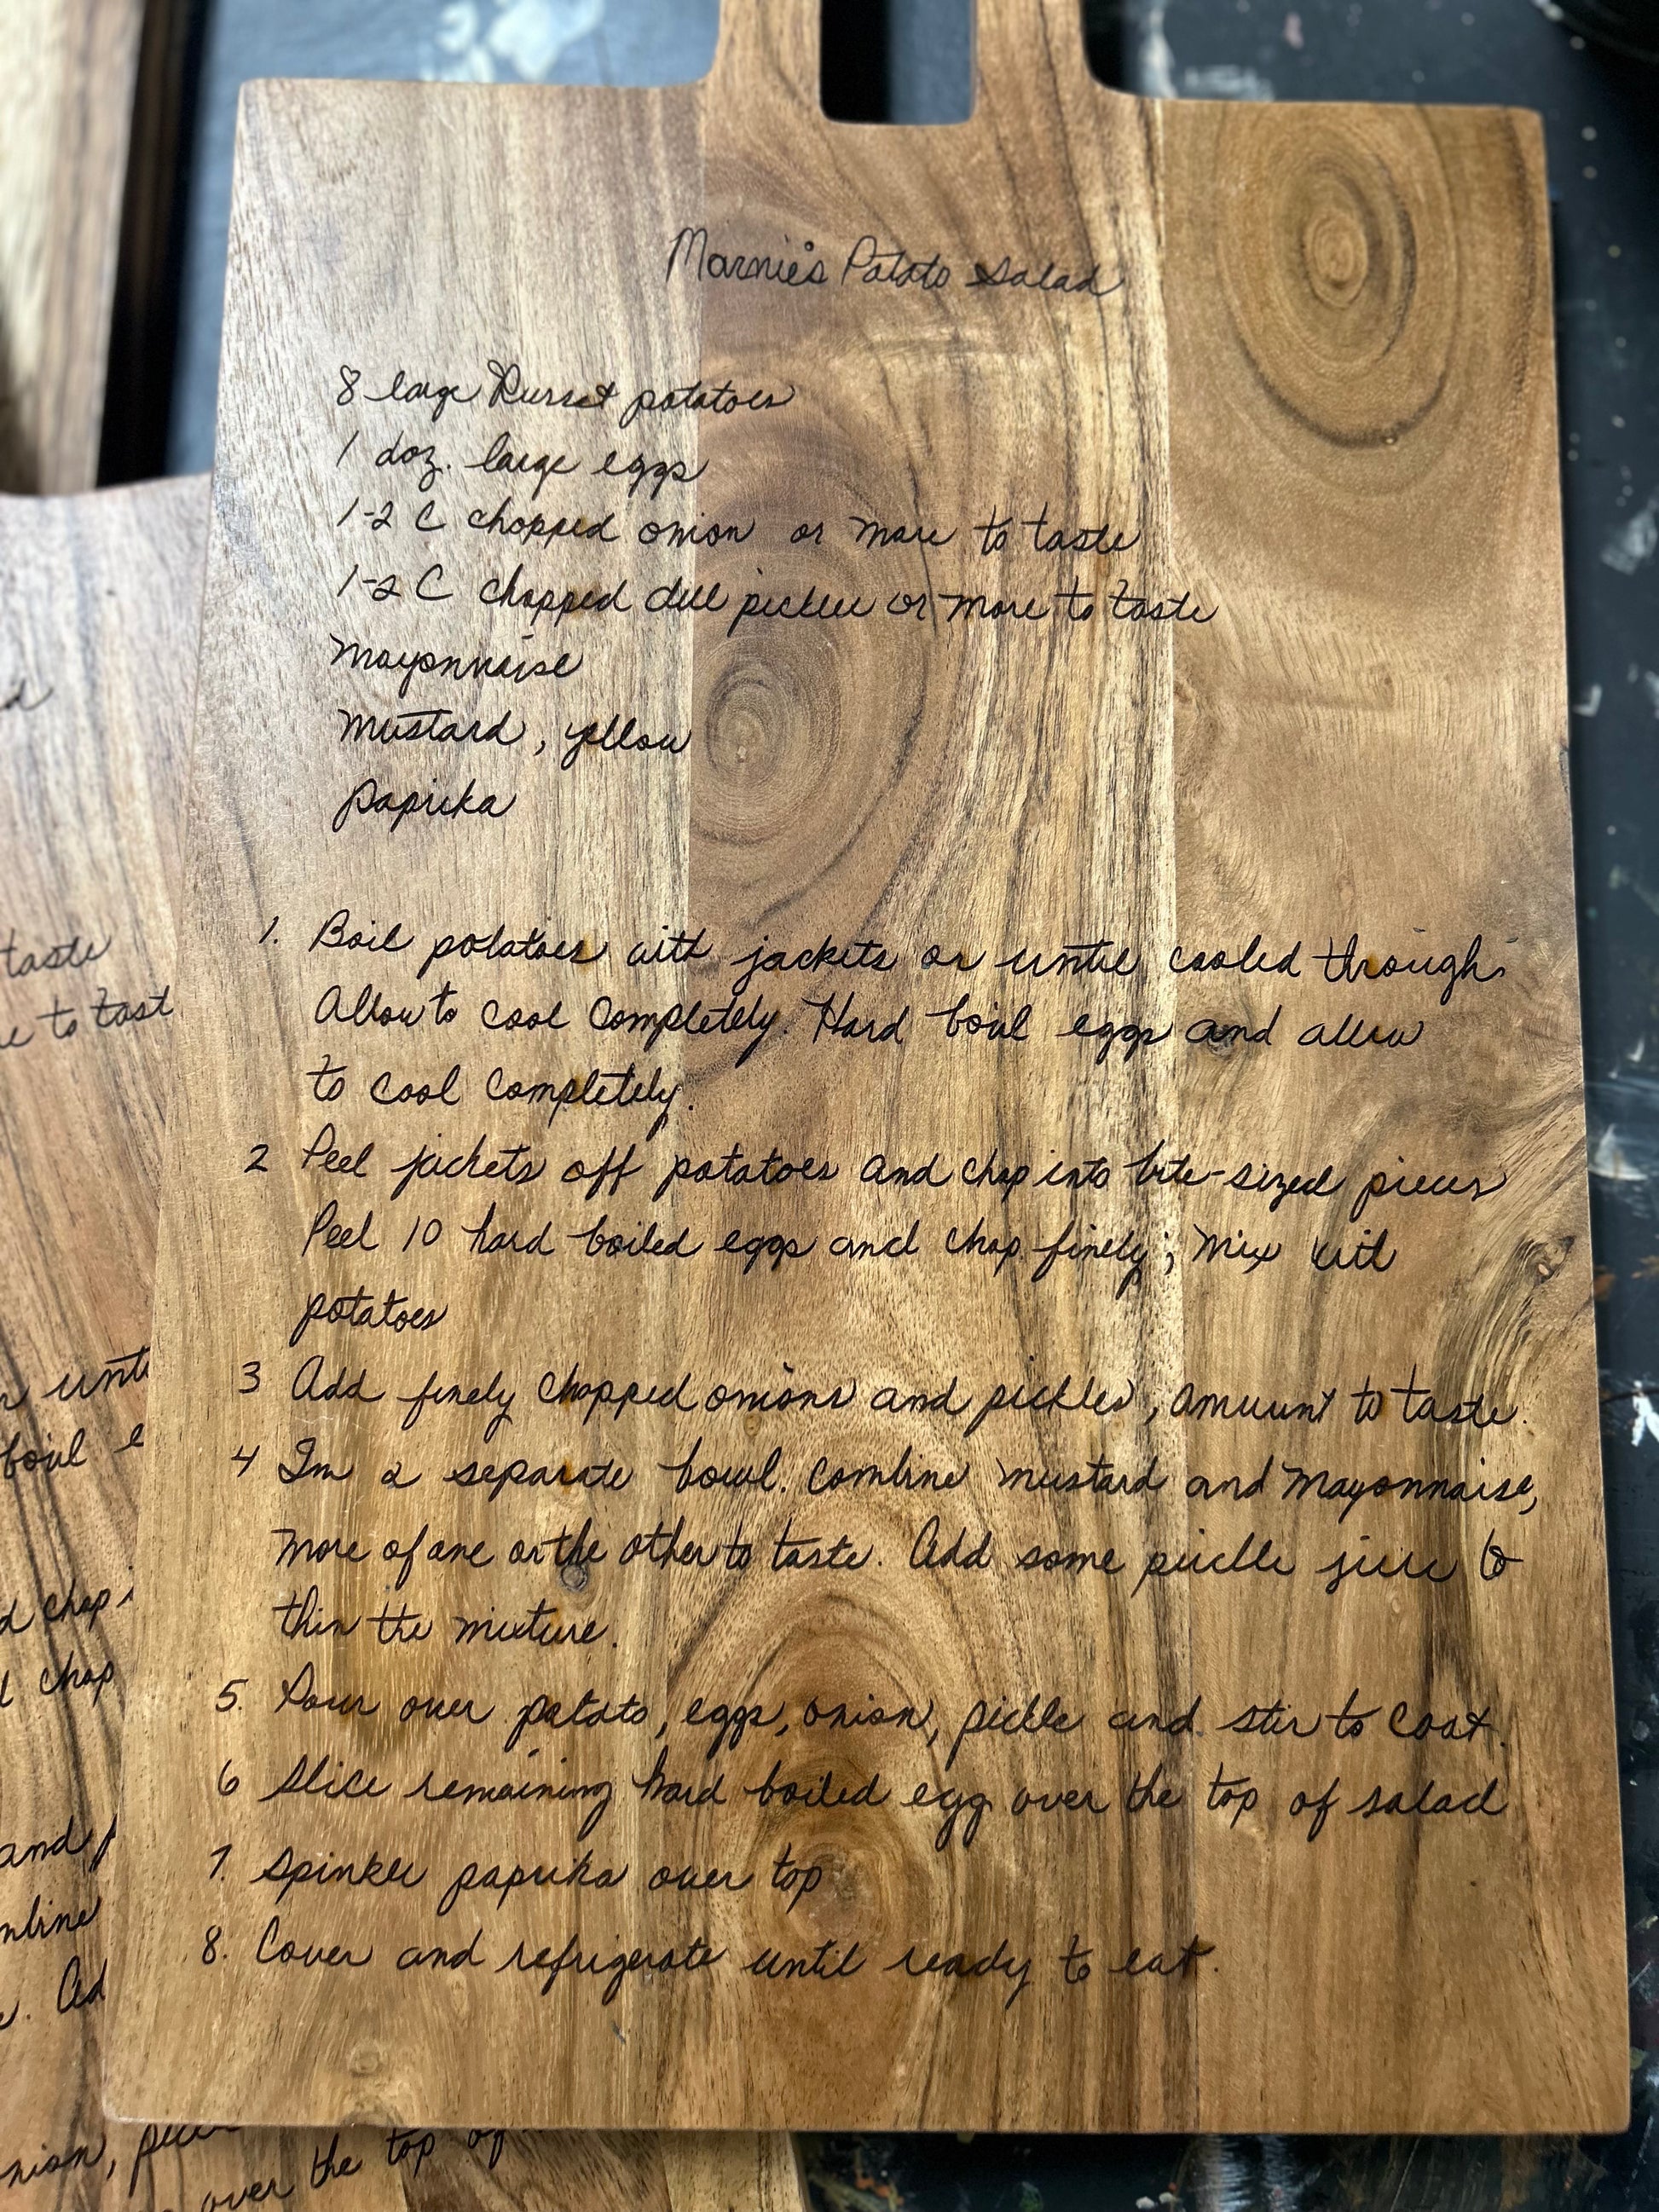 Marnie's Potato Salad
8 large Russet potatoes
1 doz. large eggs
1-2 C chopped onion or more to taste
1-2 C chopped dill pickle or more to taste
Mayonnaise
Mustard, yellow
Paprika
1. Boil potatoes with jackets on until cooled through.
Allow to cool completely. Hard boil eggs and allow
to cool completely.
2 Peel jackets off potatoes and chop into bite-sized pieces
Peel 10 hard boiled eggs and chop finely; mix with
potatoes
3 Add finely chopped onions and pickles, amount to taste.
4 In a separate bowl. Combine mustard and Mayonnaise,
more of one or the other to taste. Add some pickle juice to
thin the mixture.
5. Pour over potato, eggs, onion, pickle and stir to coat.
6 Slice remaining hard boiled egg over the top of salad
7. Spinkle paprika over top
8. Cover and refrigerate until ready to eat.
taste
to tast
boil e
d chop i
chop
and p
Ad
over the top of